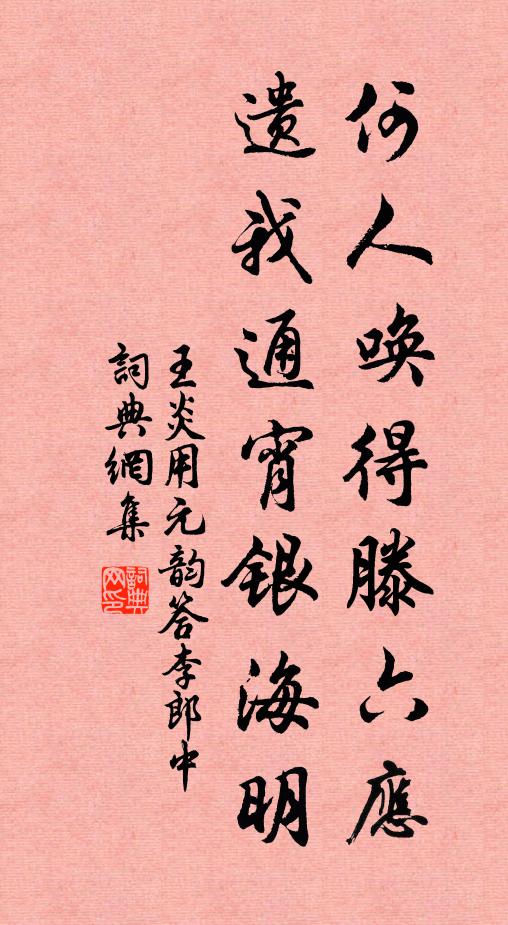 何人唤得滕六應
遗我通宵銀海明
王炎用元韵答李郎中
詞典網集
詞典网印